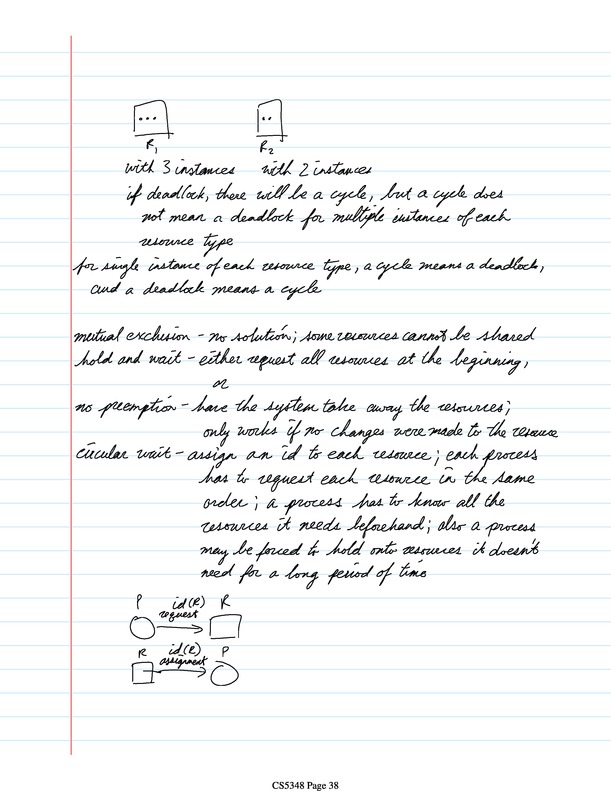 R1 R2
with 3 instances with 2 instances
if deadlock, there will be a cycle, but a cycle does
not mean a deadlock for multiple instances of each
resource type
for single instance of each resource type, a cycle means a deadlock,
and a deadlock means a cycle
mutual exclusion - no solution; some resources cannot be shared
hold and wait - either request all resources at the beginning,
or
no preemption - have the system take away the resources;
only works if no changes were made to the resource
circular wait - assign an id to each resource; each process
has to request each resource in the same
order; a process has to know all the
resources it needs beforehand; also a process
may be forced to hold onto resources it doesn't
need for a long period of time
P id(R) R
request
R id(R) P
assignment
CS5348 Page 38